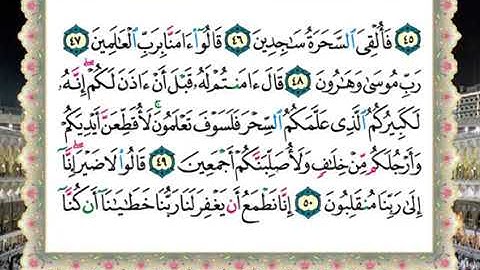 ٤٥ فَأُلْقِىَ السَّحَرَةُ سَٰجِدِينَ ٤٦ قَالُوٓا۟ ءَامَنَّا بِرَبِّ الْعَٰلَمِينَ ٤٧
رَبِّ مُوسَىٰ وَهَٰرُونَ ٤٨ قَالَ ءَامَنتُمْ لَهُۥ قَبْلَ أَنْ ءَاذَنَ لَكُمْ ۖ إِنَّهُۥ
لَكَبِيرُكُمُ الَّذِى عَلَّمَكُمُ السِّحْرَ فَلَسَوْفَ تَعْلَمُونَ ۚ لَأُقَطِّعَنَّ أَيْدِيَكُمْ
وَأَرْجُلَكُم مِّنْ خِلَٰفٍ وَلَأُصَلِّبَنَّكُمْ أَجْمَعِينَ ٤٩ قَالُوا۟ لَا ضَيْرَ ۖ إِنَّآ
إِلَىٰ رَبِّنَا مُنقَلِبُونَ ٥٠ إِنَّا نَطْمَعُ أَن يَغْفِرَ لَنَا رَبُّنَا خَطَٰيَٰنَآ أَن كُنَّآ